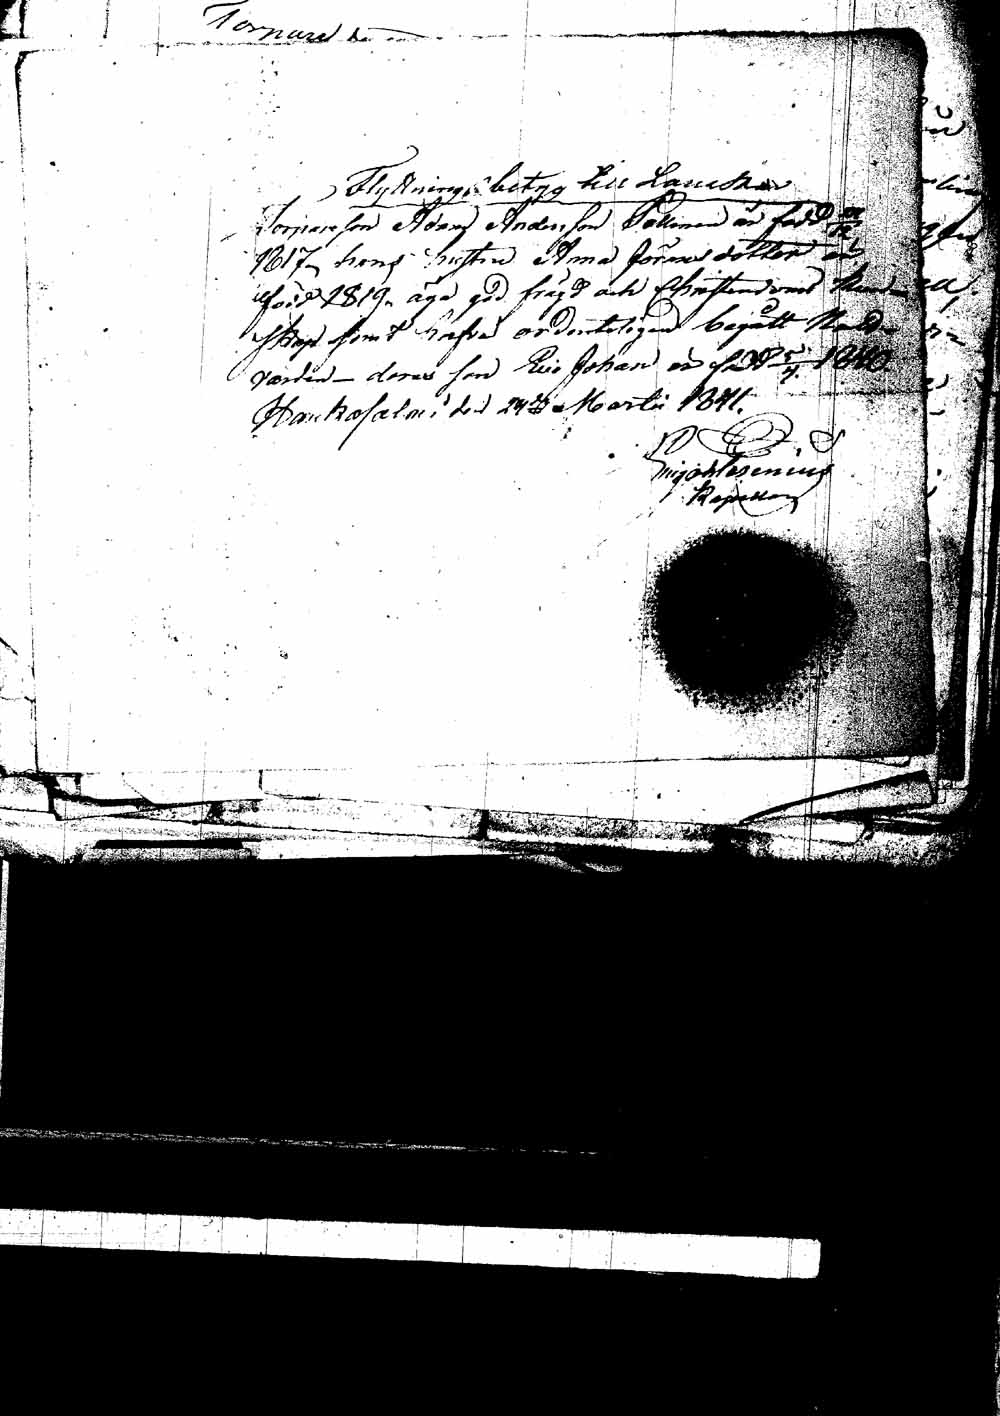 Torpare
Flyttnings betyg till Laukas
Torpareson Adam Anderson Pollonen är född
1817, hans hustru Anna Göransdotter är
född 1819. äga god frägd och Christendoms kun-
skap samt hafva ordenteligen begått Natt-
varden — deras son Johan är född 5/4 1840.
Hankasalmi den 24de Martii 1841.
Kapellan